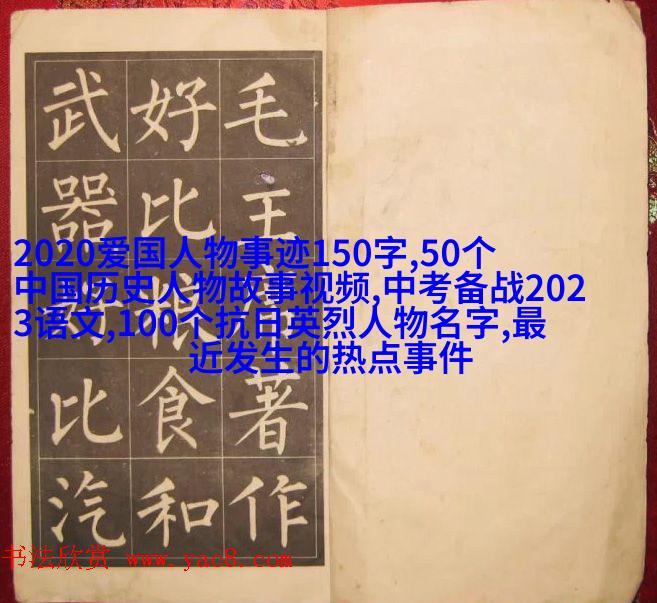 毛主席著作
好比粮食和
武器好比汽
2020爱国人物事迹150字,50个
中国历史人物故事视频,中考备战202
3语文,100个抗日英烈人物名字,最
近发生的热点事件
书法欣赏 www.yac8.com